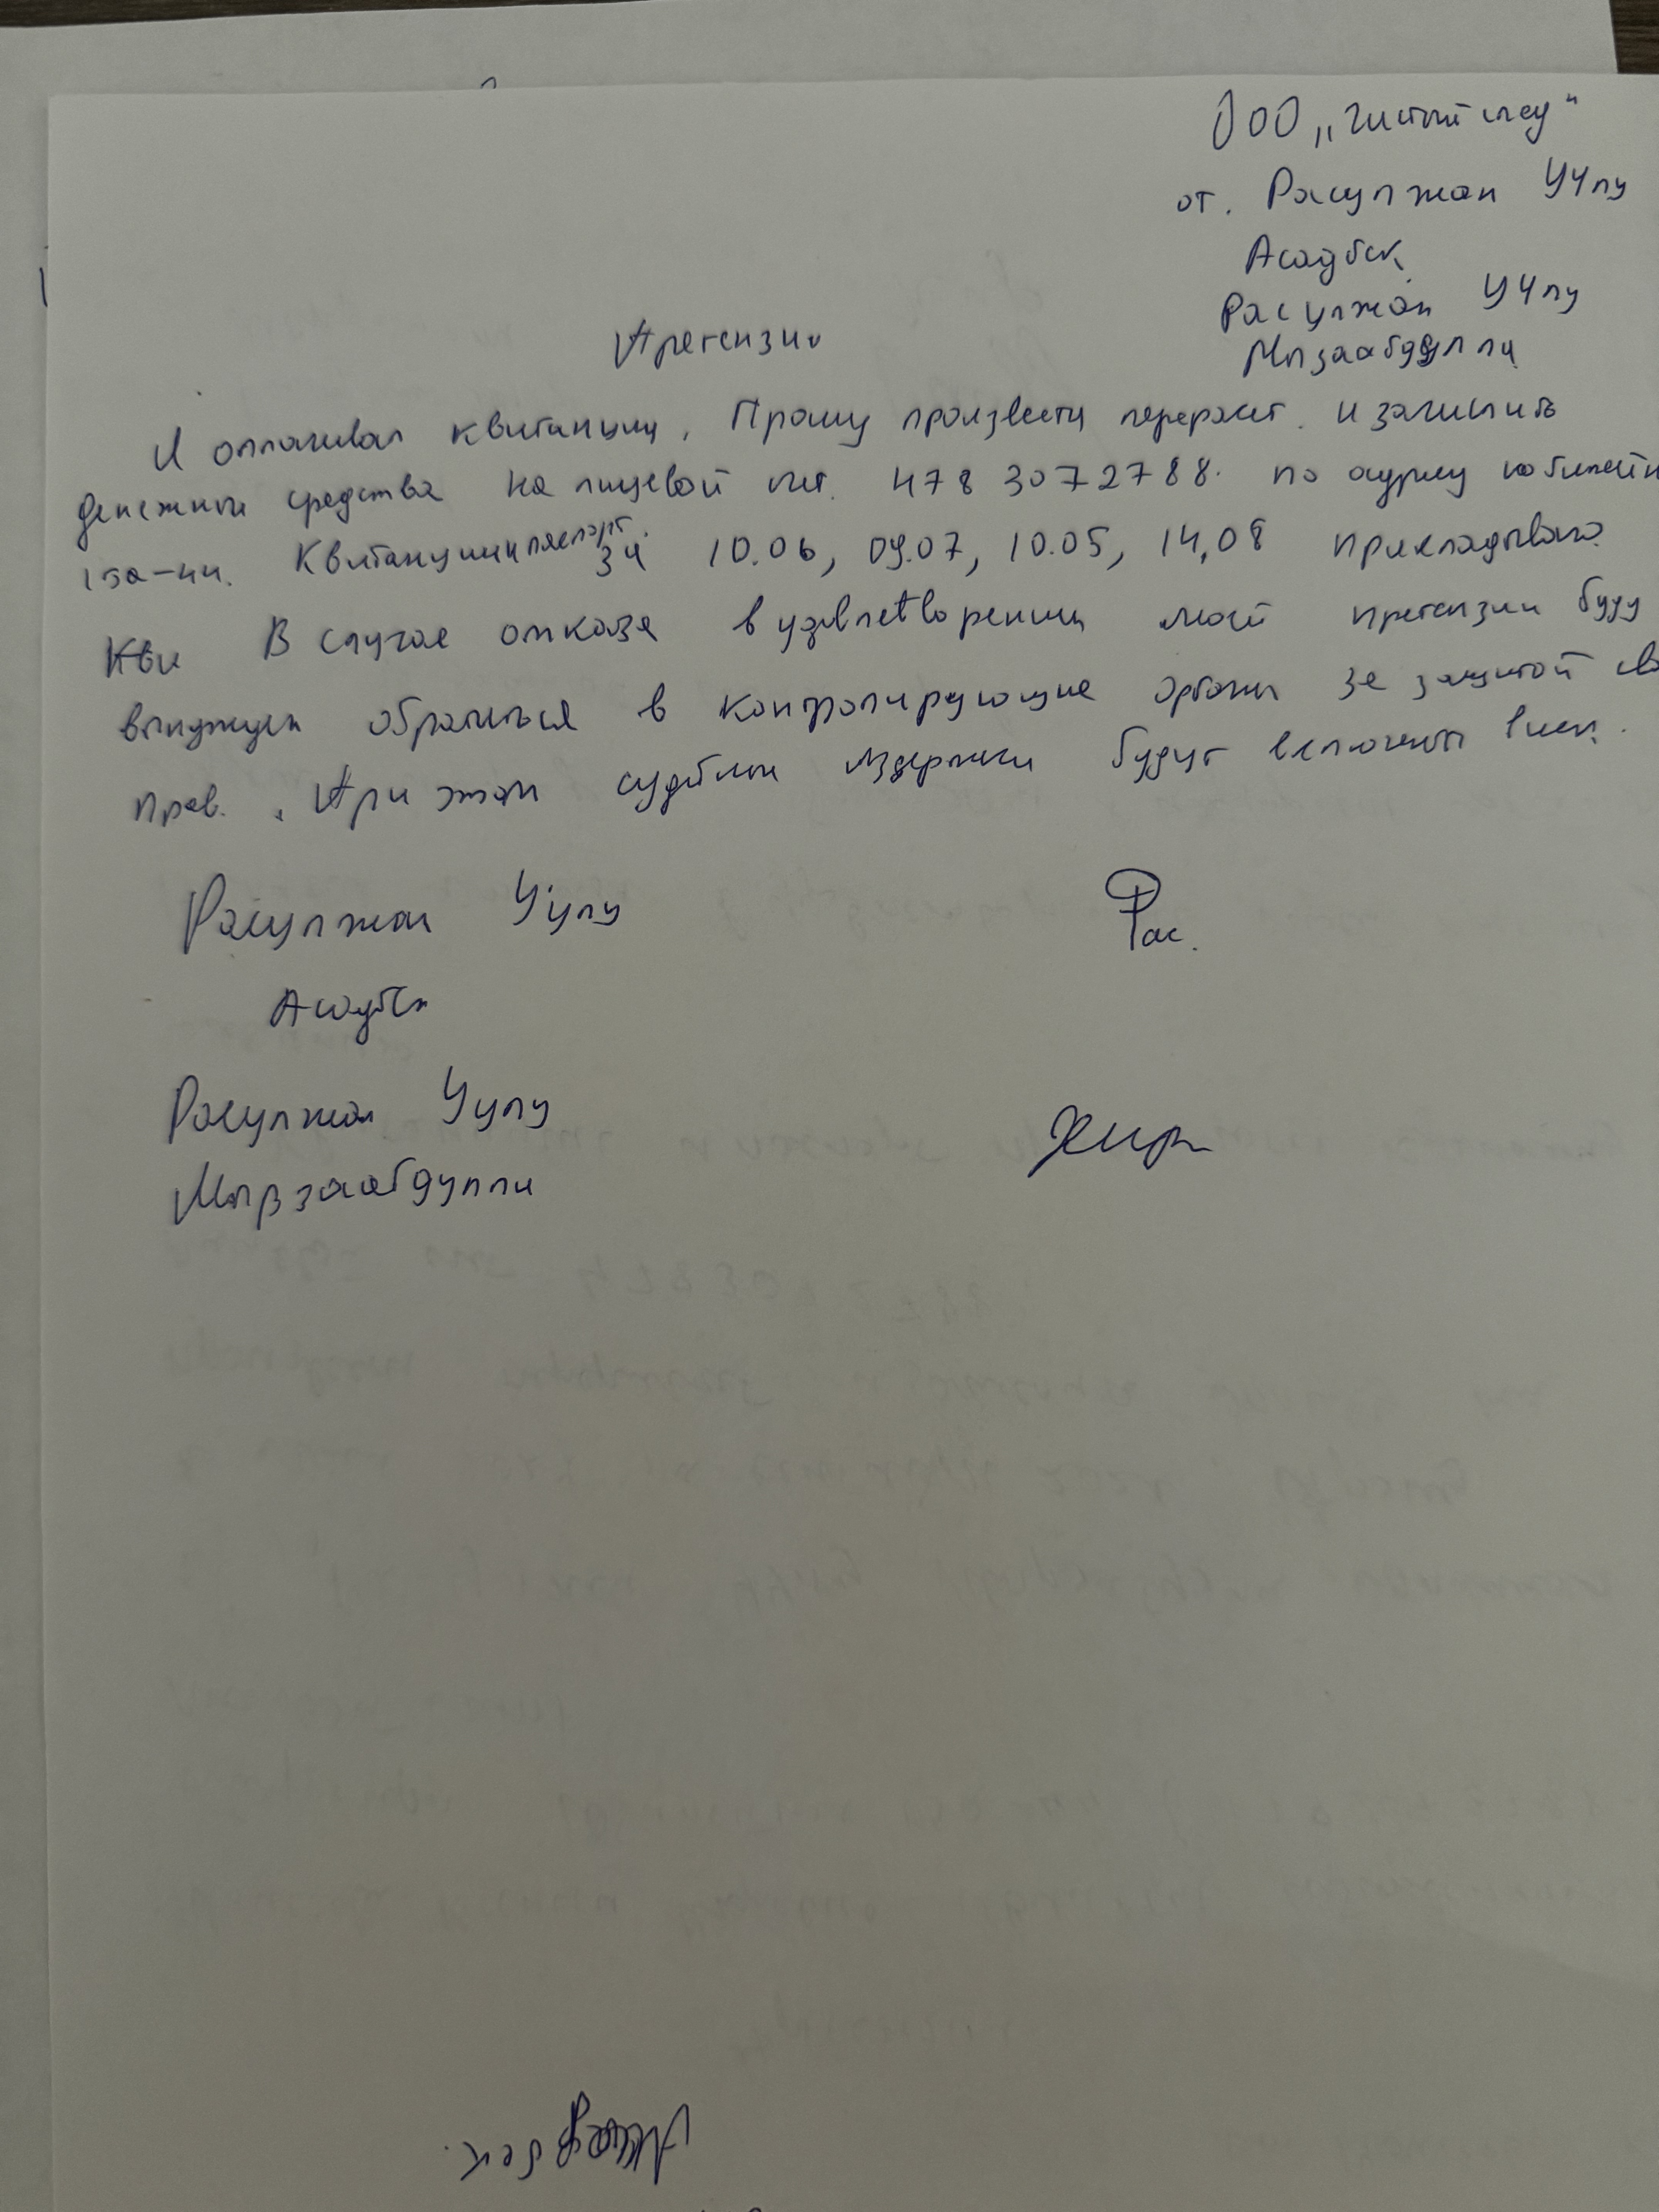 ООО „Чистый след"
от. Расулжан Уулу
Асадбек
Расулжан Уулу
Мызаабдулла
Претензия
Я оплачивал квитанции. Прошу произвести перерасчет. и зачислить
денежные средства на лицевой счет. 478 3072788. по адресу
Квитанции паспорт. за 10.06, 09.07, 10.05, 14,08 прикладываю.
Кви В случае отказа в удовлетворении моей претензии буду
вынужден обратиться в контролирующие органы за защитой сво
прав. При этом судебные издержки будут включены в иск.
Расулжан Уулу Рас.
Асадбек
Расулжан Уулу
Мырзаабдулла